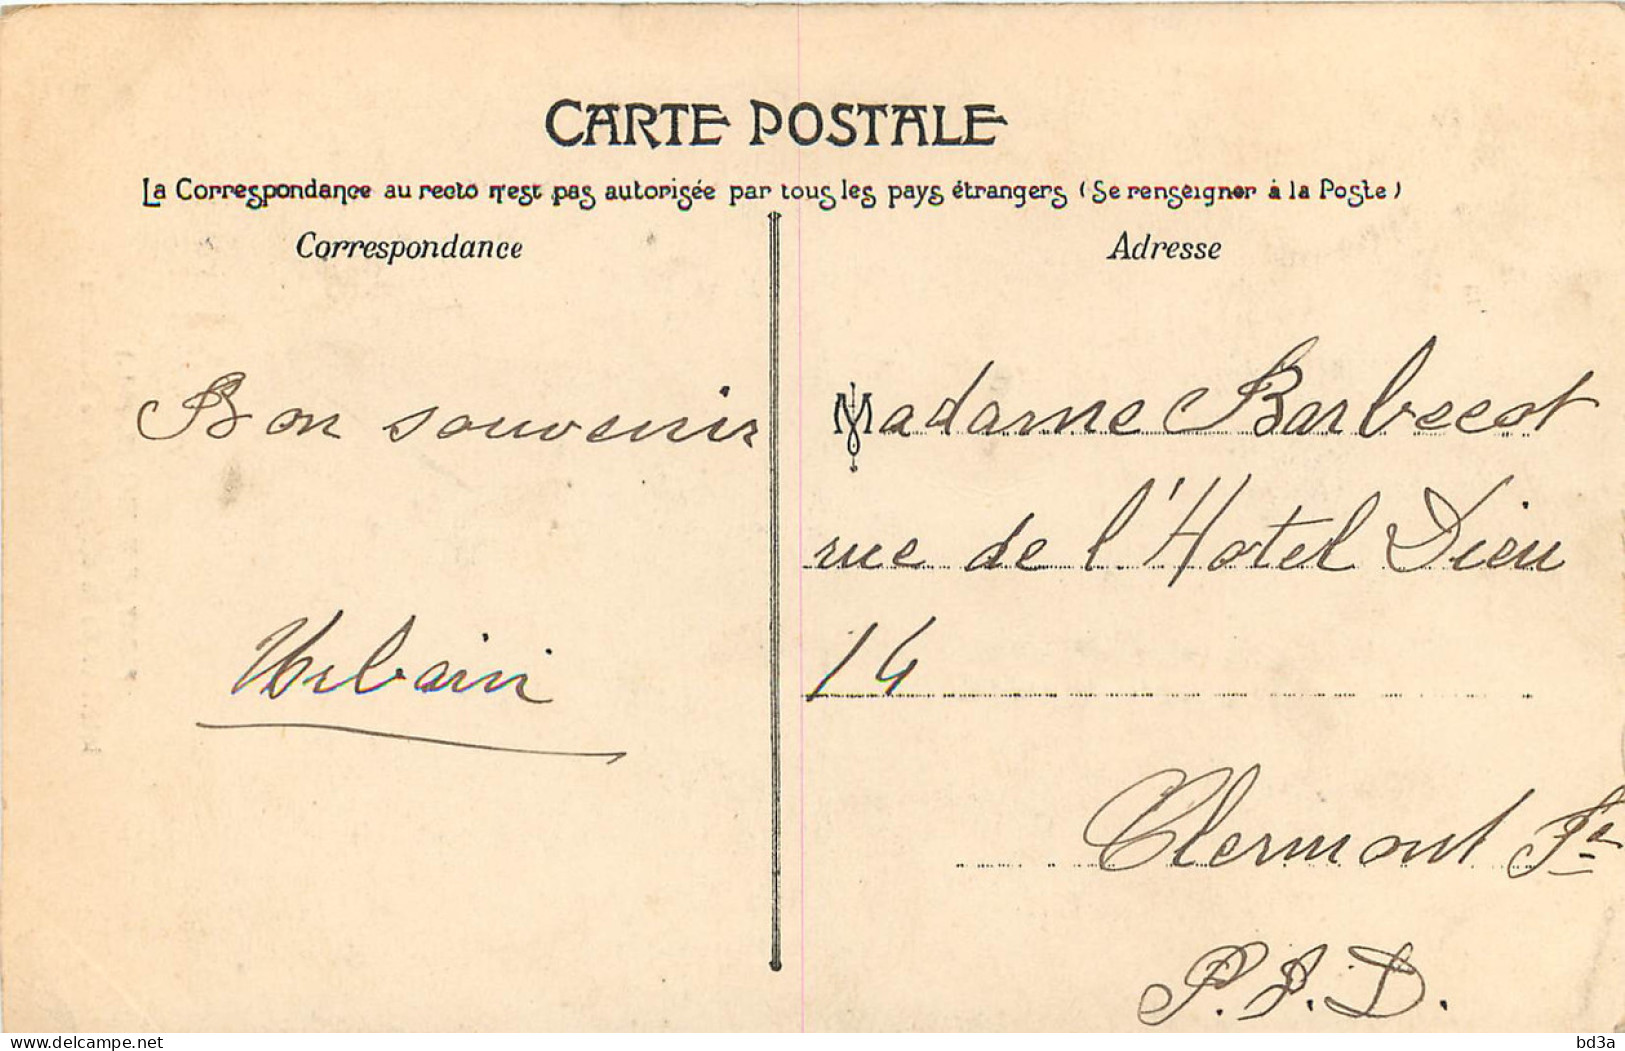 CARTE POSTALE
La Correspondance au recto n'est pas autorisée par tous les pays étrangers (Se renseigner à la Poste)
Correspondance
Adresse
Bon souvenir
Urbain
Madame Barbecot
rue de l'Hotel Dieu
14
Clermont Fd
P. d. D.
www.delcampe.net
bd3a